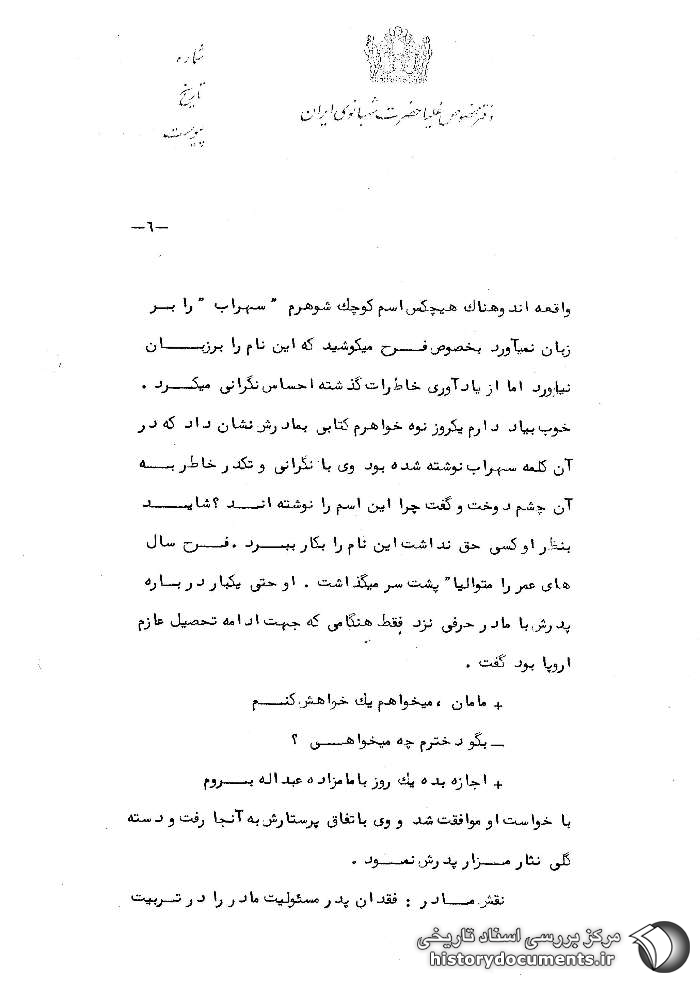 شماره
تاریخ
پیوست
دفتر مخصوص علیاحضرت شهبانوی ایران
—٦—
واقعه اند وهناك هیچکس اسم کوچك شوهرم " سهراب " را بــر
زبان نمیآورد بخصوص فــرح میکوشید که این نام را برزبـــان
نیاورد اما از یاد آوری خاطرات گذشته احساس نگرانی میکـرد .
خوب بیاد دارم یکروز نوه خواهرم کتابی بمادرش نشان داد که در
آن کلمه سهراب نوشته شده بود وی با نگرانی و تکدر خاطر بــه
آن چشم دوخت و گفت چرا این اسم را نوشته انـــد ؟ شایـــد
بنظر او کسی حق نداشت این نام را بکار ببـرد . فــرح سال
های عمر را متوالیا" پشت سر میگذاشت . او حتی یکبار درباره
پدرش با مادر حرفی نزد فقط هنگامی که جهت ادامه تحصیل عازم
اروپا بود گفت .
+ مامان ، میخواهم یك خواهش کنــم
ــ بگو دخترم چه میخواهـــی ؟
+ اجازه بده یك روز بامامزاده عبداله بــروم
با خواست او موافقت شد و وی باتفاق پرستارش به آنجا رفت و دسته
گلی نثار مــزار پدرش نمــود .
نقش مــادر : فقدان پدر مسئولیت مادر را در تــربیت
مرکز بررسی اسناد تاریخی
historydocuments.ir